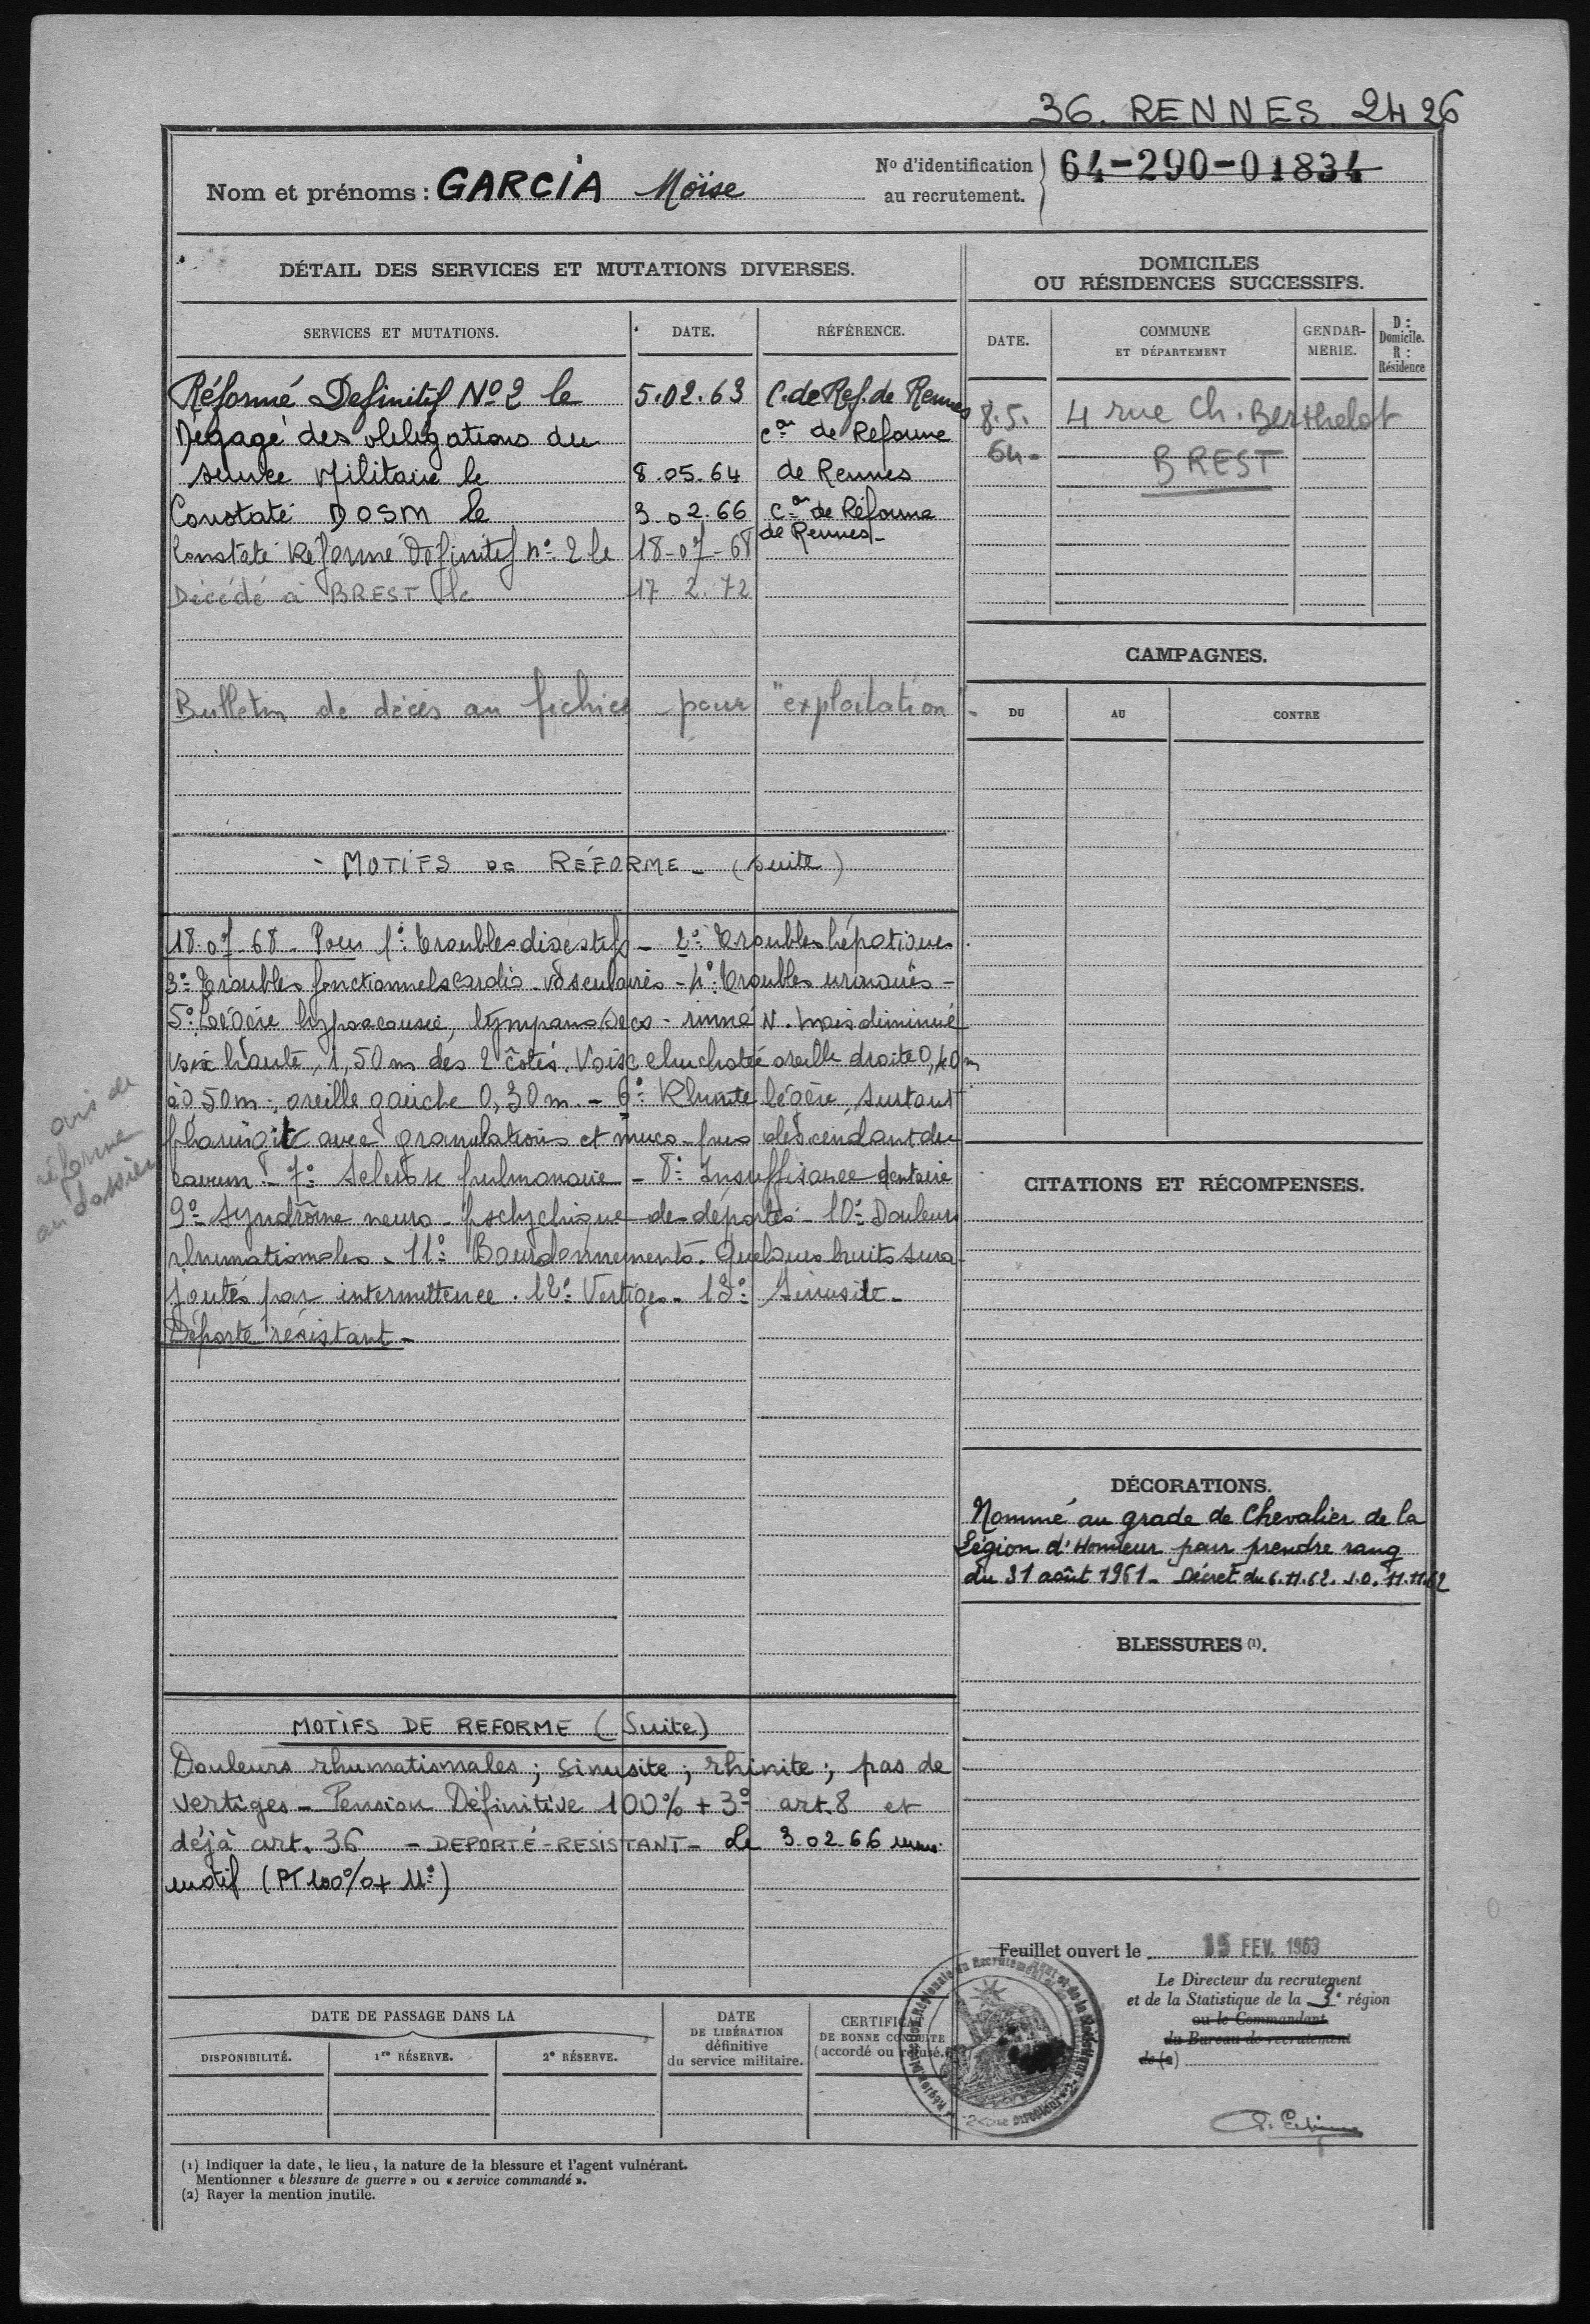 36. RENNES 2426
Nom et prénoms : GARCIA Moïse
No d'identification
au recrutement.
64-290-01834
DÉTAIL DES SERVICES ET MUTATIONS DIVERSES.
SERVICES ET MUTATIONS. DATE. RÉFÉRENCE.
Réformé Definitif No 2 le 5.02.63 C. de Ref. de Rennes
Dégagé des obligations du con de Reforme
service Militaire le 8.05.64 de Rennes
Constaté DOSM le 3.02.66 con de Réforme
de Rennes-
Constaté Réformé Définitif no 2 le 18-07-68
Décédé à BREST le 17 2.72
Bulletin de décès au fichier pour "exploitation"
- MOTIFS DE RÉFORME - (suite)
18-07-68 - Pour 1o: Troubles digestifs - 2o: Troubles hépatiques
3o: Troubles fonctionnels cardio-vasculaires - 4o: Troubles urinaires -
5o: Légère hypoacousie, tympans secs - rinné N. mais diminué
Voix haute, 1,50 m des 2 côtés. Voix chuchotée oreille droite 0,40 m
à 0 50m-, oreille gauche 0,30 m. - 6o: Rhinite légère, surtout
pharingite avec granulations et muco-pus descendant du
cavum - 7o: Sclérose pulmonaire - 8o: Insuffisance dentaire
9o: Syndrôme neuro-pschychique de déportés - 10o: Douleurs
rhumatismales - 11o: Bourdonnements. Quelques bruits sura-
joutés par intermittence. 12o: Vertiges - 13o: Sinusite -
Déporté résistant -
avis de
réforme
au dossier
MOTIFS DE REFORME (Suite)
Douleurs rhumatismales ; sinusite ; rhinite ; pas de
vertiges - Pension Définitive 100% + 3o art. 8 et
déjà art. 36 - DEPORTÉ-RESISTANT - Le 3-02-66
motif (PT 100% + 11o)
DATE DE PASSAGE DANS LA
DISPONIBILITÉ. 1re RÉSERVE. 2e RÉSERVE.
DATE
DE LIBÉRATION
définitive
du service militaire.
CERTIFICAT
DE BONNE CONDUITE
(accordé ou refusé.)
(1) Indiquer la date, le lieu, la nature de la blessure et l'agent vulnérant.
Mentionner « blessure de guerre » ou « service commandé ».
(2) Rayer la mention inutile.
DOMICILES
OU RÉSIDENCES SUCCESSIFS.
DATE. COMMUNE
ET DÉPARTEMENT
GENDAR-
MERIE.
D :
Domicile.
R :
Résidence
8.5. 4 rue Ch. Berthelot
64- BREST
CAMPAGNES.
DU AU CONTRE
CITATIONS ET RÉCOMPENSES.
DÉCORATIONS.
Nommé au grade de Chevalier de la
Légion d'Honneur pour prendre rang
du 31 août 1961 - Décret du 6.11.62. J.O. 11.11.62
BLESSURES (1).
Feuillet ouvert le 15 FEV. 1963
Le Directeur du recrutement
et de la Statistique de la 3e région
ou le Commandant
du Bureau de recrutement
de (2)